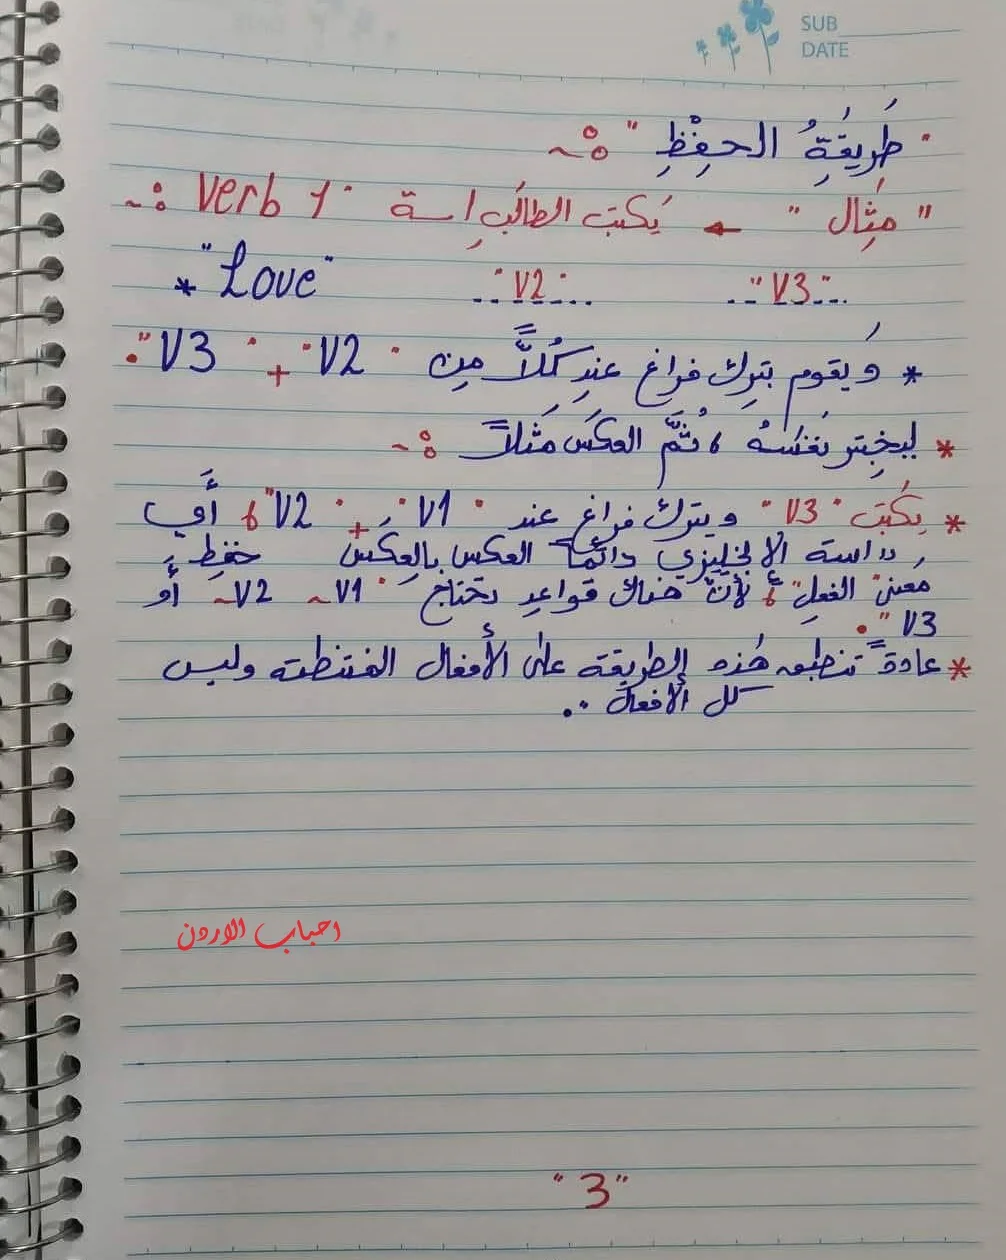 SUB
DATE
" طَرِيقَةُ الحِفْظِ " :~
" مِثَال " ← يَكتب الطالبِ/سة " Verb 1 " :~
* "Love" ..."V2"... ..."V3"...
* وَيقوم بتَرك فراغ عندِ كُلاًّ مِن " V2 " + " V3 ".
* ليختبر نَفسَهُ ، ثُمَّ العكَس مَثلاً :~
* يكَتب " V3 " ويترك فراغ عند " V1 " + " V2 " ، أَي
دراسة الإنجليزي دائماً العكس بالعِكَس حفظِ
معنىَ الفعلِ ، لأنّ هناك قواعدِ تحتاج " V1 ~ V2 ~ أَو
V3 ".
* عادةً تنطبق هَذه الطريقة على الأَفعال المنتظمة وليس
كل الأفعال ..
احباب الاردن
" 3 "